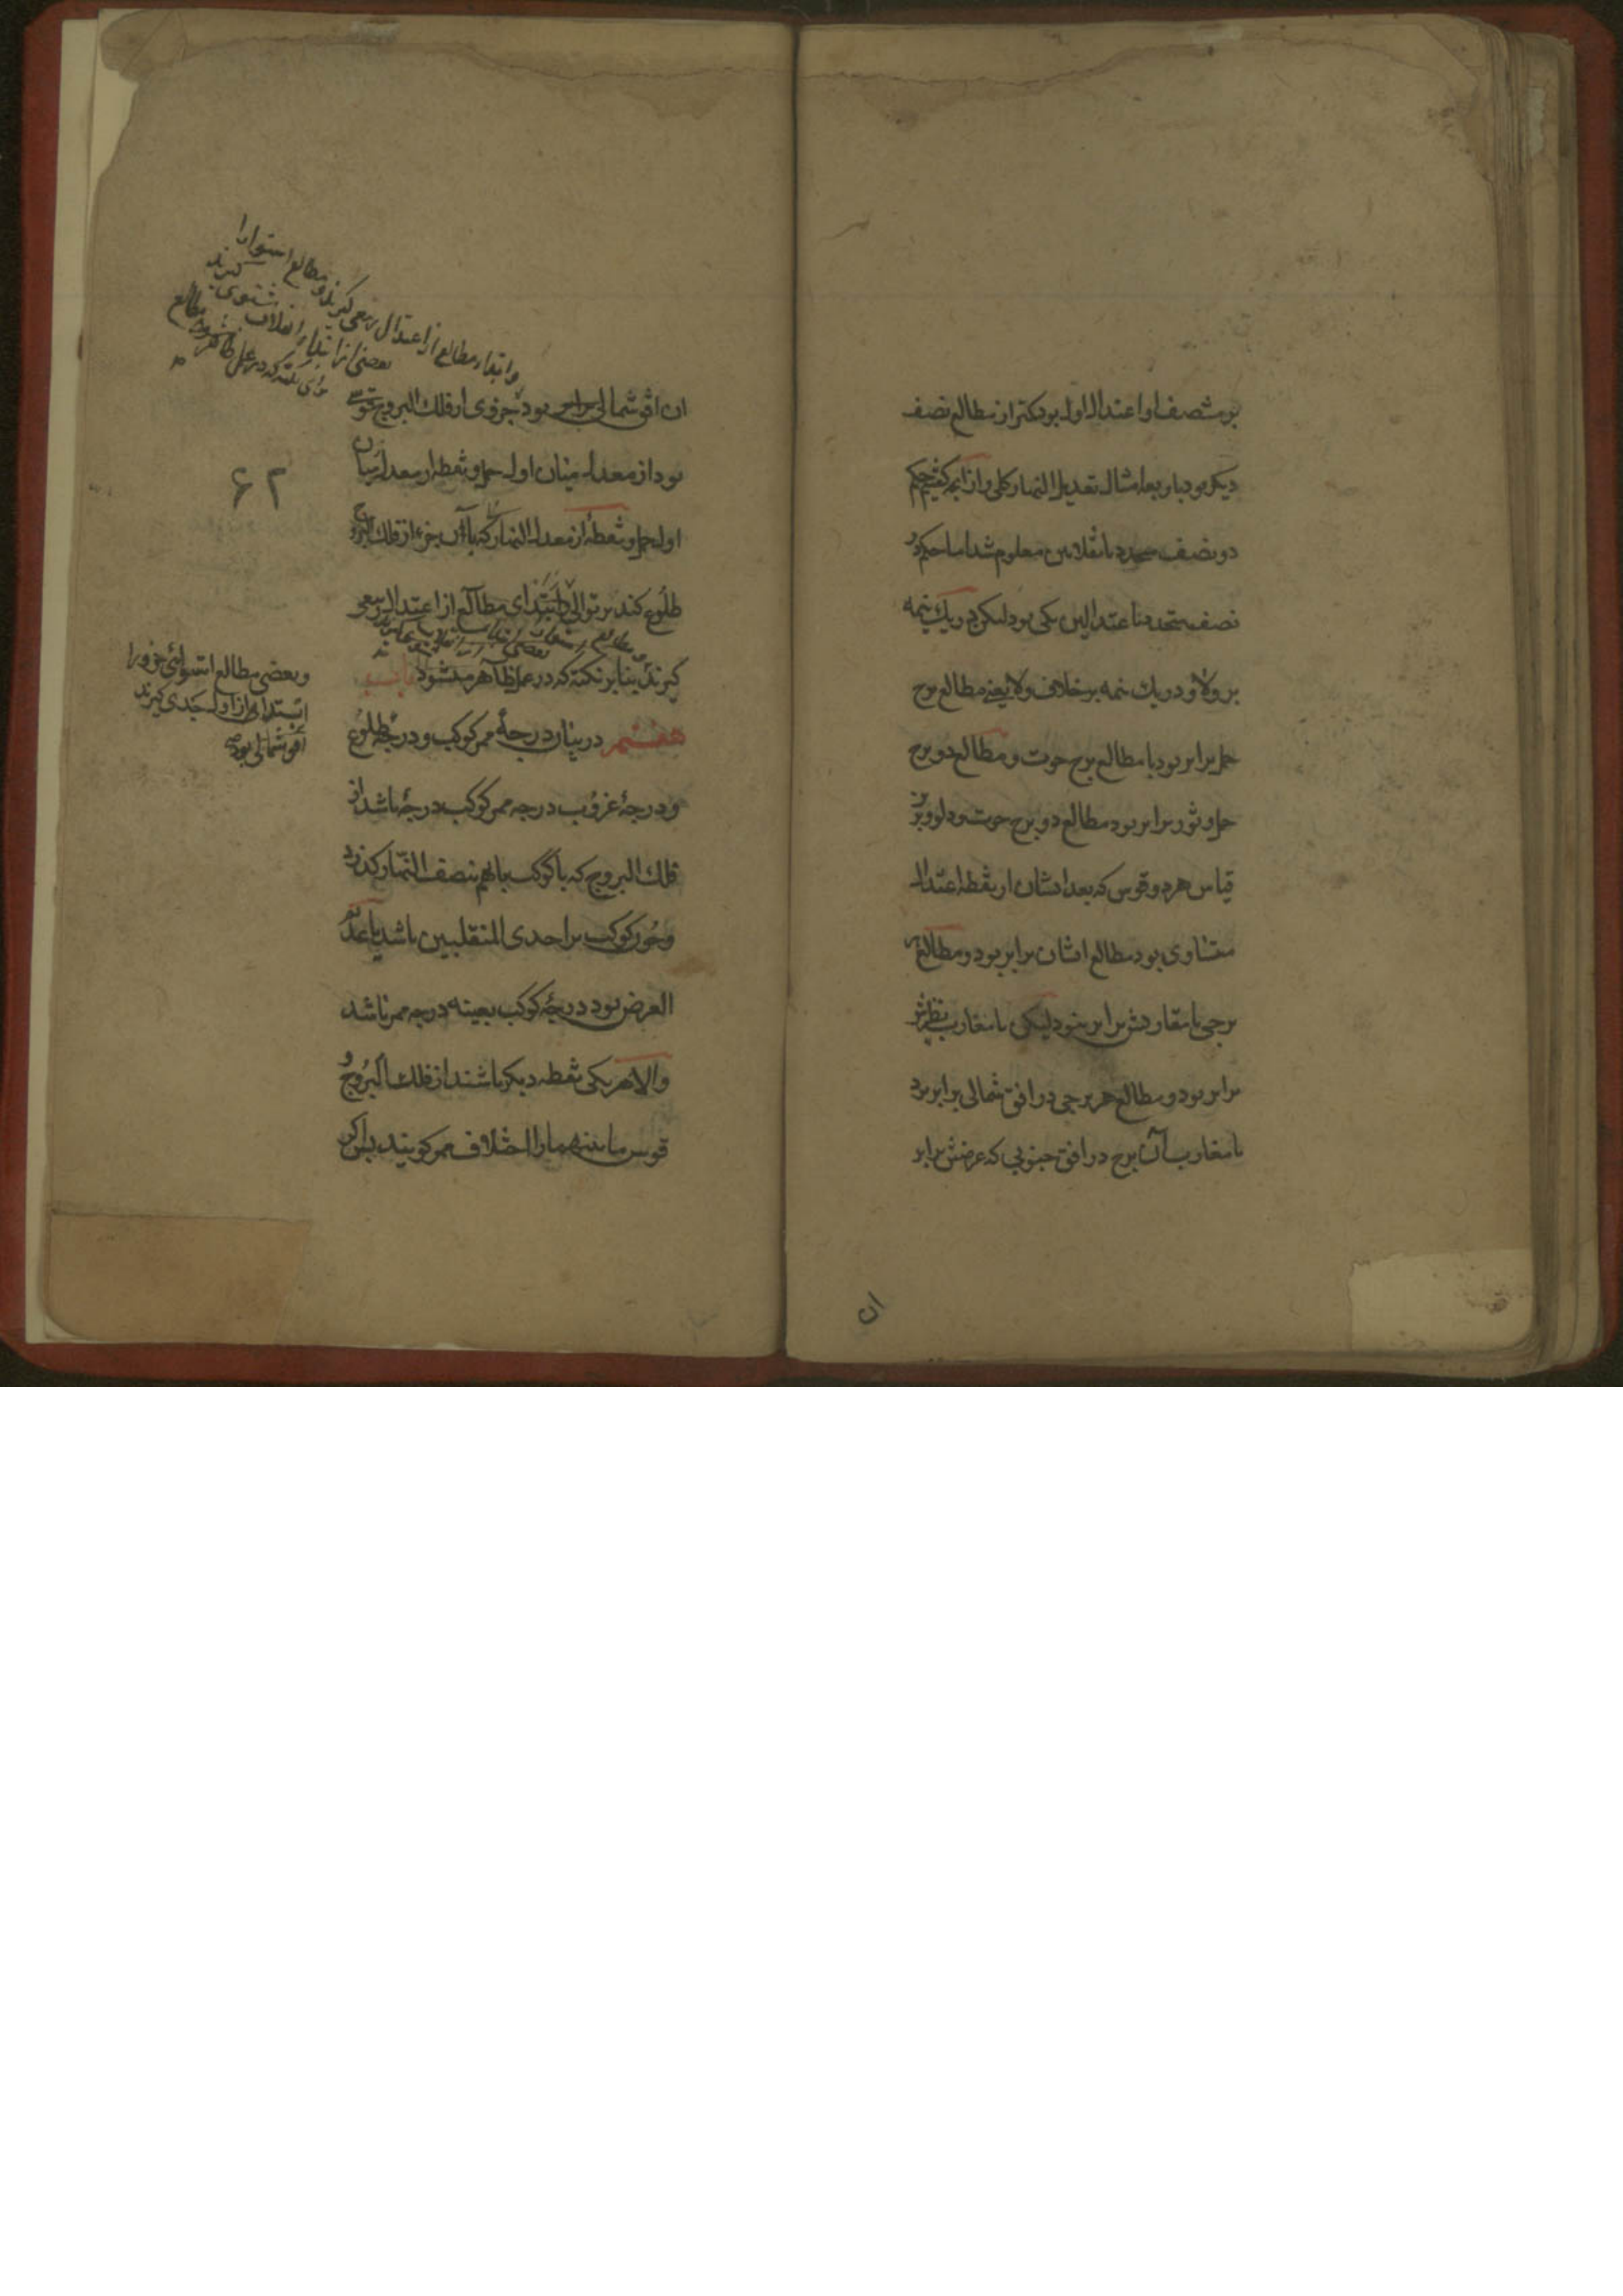 بر منتصف او اعتدال اول بود کمتر از مطالع نصف
دیکر بود باربعة امثال تعدیل النهار کلی و از آنچه کفتیم حکم
دو نصف محدد بانقلابین معلوم شد اما حکم دو
نصف متحدد باعتدالین یکی بود لیکن در یک نیمه
بر ولا و در یک نیمه بر خلاف ولا یعنی مطالع برج
حمل برابر بود با مطالع برج حوت و مطالع دو برج
حمل و ثور برابر بود مطالع دو برج حوت و دلو و برین
قیاس هر دو قوس که بعد ایشان از نقطه اعتدال
متساوی بود مطالع ایشان برابر بود و مطالع هر
برجی با مغاربش برابر نبود لیکن با مغارب نظیرش
برابر بود و مطالع هر برجی در افق شمالی برابر بود
با مغارب آن برج در افق جنوبی که عرضش برابر
ان
وابتداء مطالع از اعتدال ربیعی کیرند و مطالع استوا را
بعضی از ابتداء انقلاب شتوی کیرند
برای نکته که در عمل ظاهر شود مطالع
ان افق شمالی بود جزوی از فلک البروج قوسی
بود از معدل میان اول حمل و نقطه از معدل میان
اول حمل و نقطهٔ از معدل النهار که با آن جزء از فلک البروج
طلوع کند بر توالی و ابتدای مطالع از اعتدال ربیعی
کیرند بنابر نکته که در عمل ظاهر میشود باب
هفتم در بیان درجهٔ ممر کوکب و درجهٔ طلوع
و درجهٔ غروب درجه ممر کوکب درجهٔ باشد از
فلک البروج که با کوکب باهم بنصف النّهار کذرد
و چون کوکب بر احدی المنقلبین باشد یا عدیم
العرض بود درجهٔ کوکب بعینه درجه ممر باشد
والا هر یکی نقطه دیکر باشند از فلک البروج و
قوس مابینهما را اختلاف ممر کویند پس اکر
۶۲
وبعضی مطالع استوائی جزو را
ابتدا از اول جدی کیرند
افق شمالی بود صح